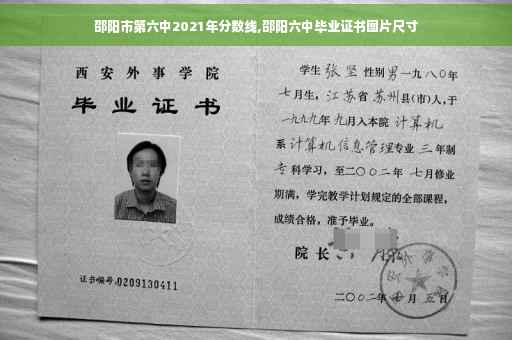 邵阳市第六中2021年分数线,邵阳六中毕业证书图片尺寸
西安外事学院
毕业证书
证书编号:0209130411
学生 张坚 性别 男 一九八〇年
七月生, 江苏省 苏州 县(市)人,于
一九九九年 九月入本院 计算机
系 计算机信息管理 专业 三 年制
专 科学习, 至二〇〇二年 七月修业
期满, 学完教学计划规定的全部课程,
成绩合格, 准予毕业。
院 长
二〇〇二年 月 五 日